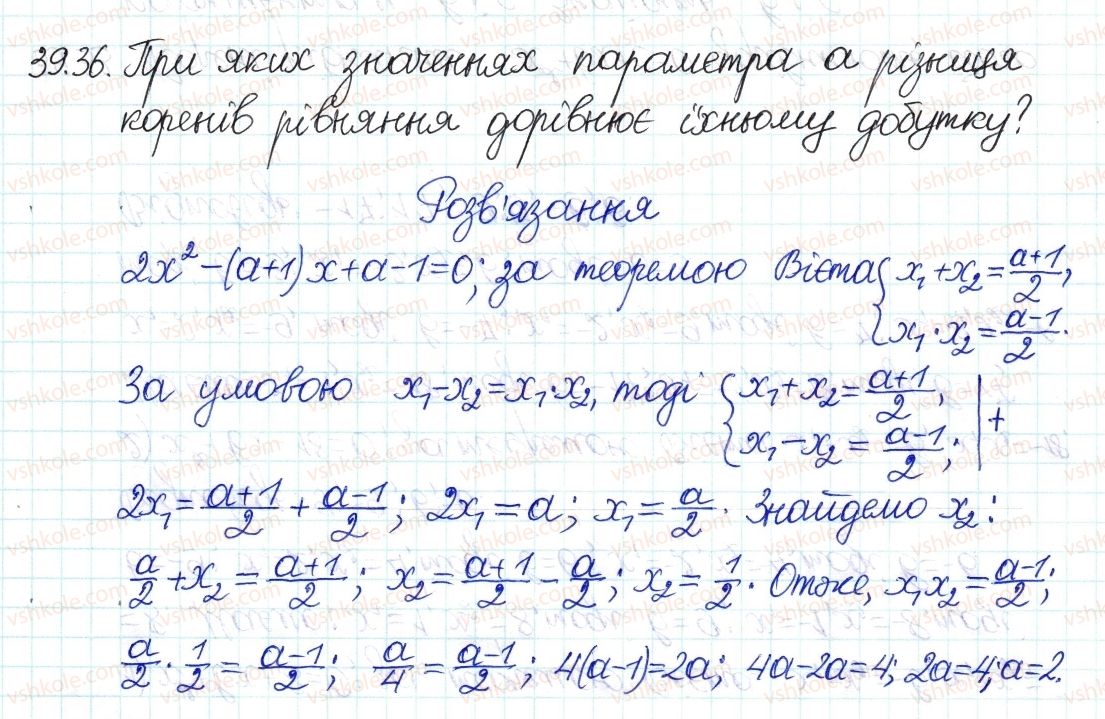 39.36. При яких значеннях параметра a різниця
коренів рівняння дорівнює їхньому добутку?
Розв'язання
2x² - (a+1)x + a - 1 = 0; за теоремою Вієта { x₁ + x₂ = (a+1)/2,
x₁ · x₂ = (a-1)/2.
За умовою x₁ - x₂ = x₁ · x₂, тоді { x₁ + x₂ = (a+1)/2, | +
x₁ - x₂ = (a-1)/2; |
2x₁ = (a+1)/2 + (a-1)/2; 2x₁ = a; x₁ = a/2. Знайдемо x₂:
a/2 + x₂ = (a+1)/2; x₂ = (a+1)/2 - a/2; x₂ = 1/2. Отже, x₁x₂ = (a-1)/2;
a/2 · 1/2 = (a-1)/2; a/4 = (a-1)/2; 4(a-1) = 2a; 4a - 2a = 4; 2a = 4; a = 2.